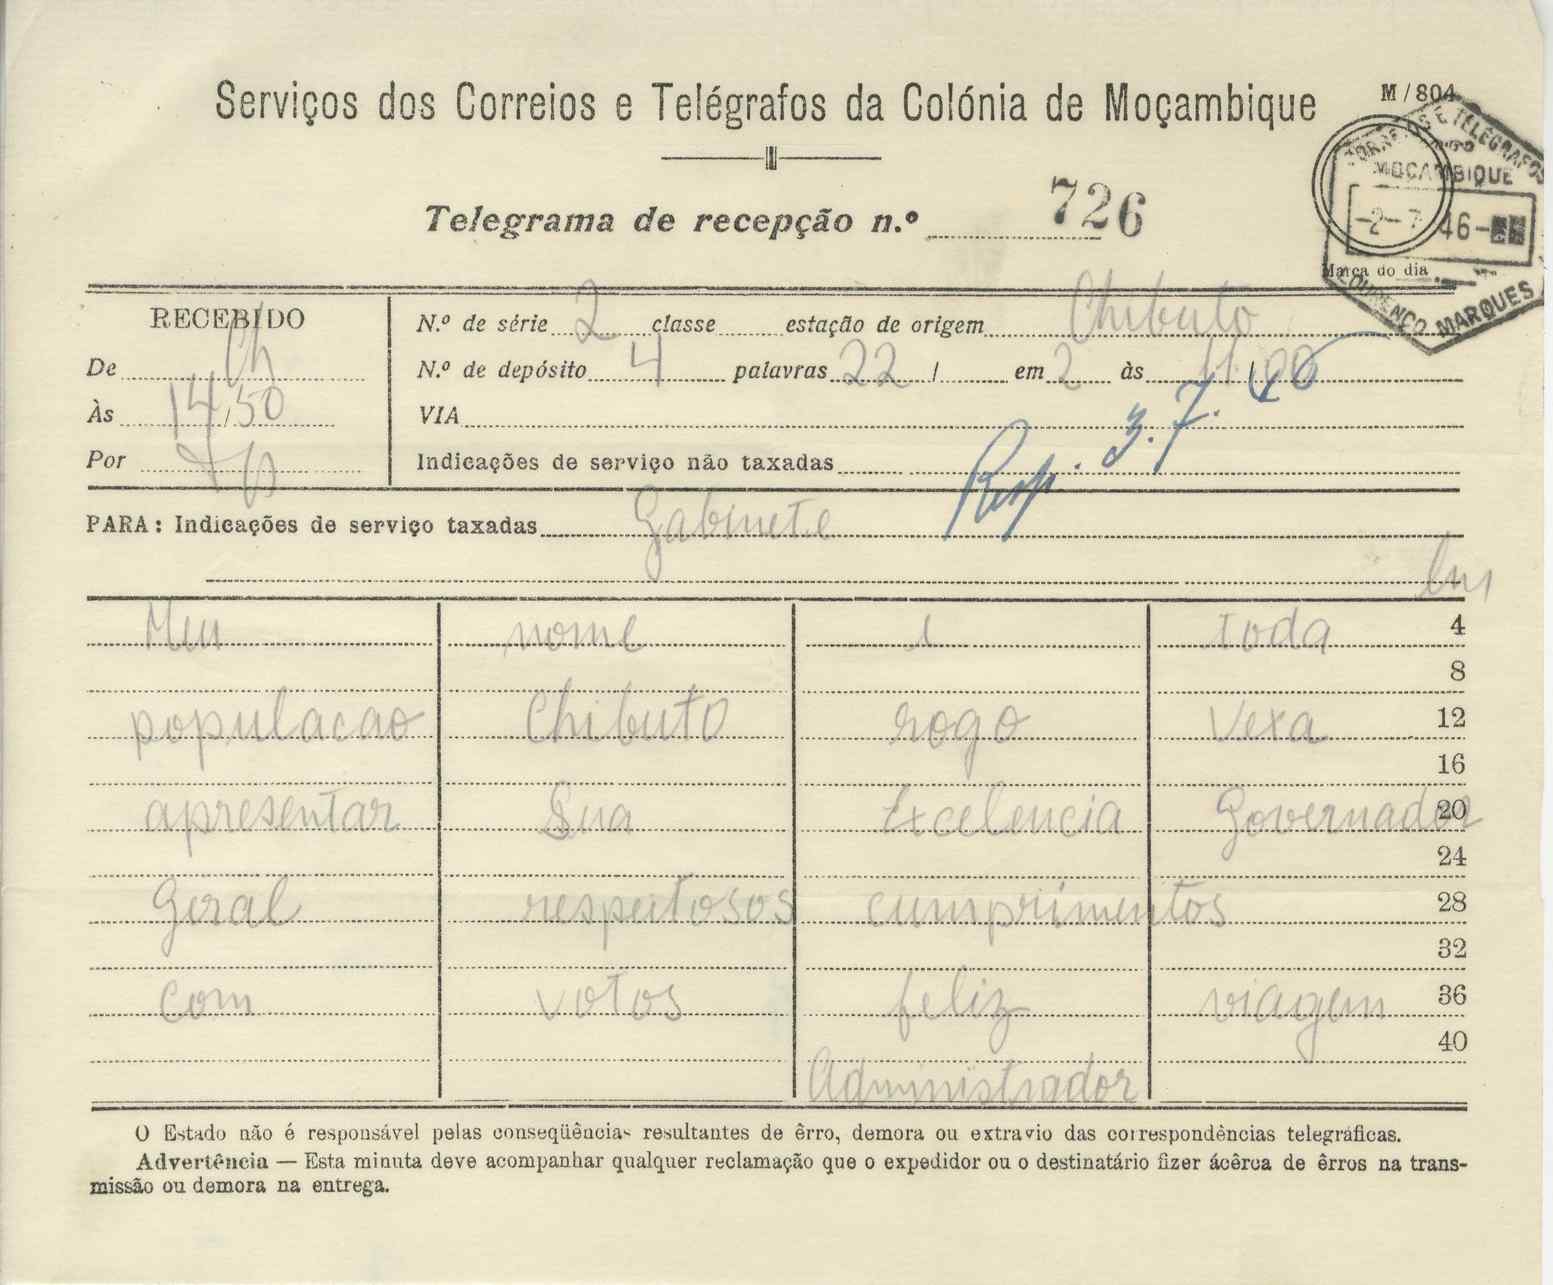 Serviços dos Correios e Telégrafos da Colónia de Moçambique
M/804
Telegrama de recepção n.º 726
CORREIOS E TELÉGRAFOS
MOÇAMBIQUE
-2-7 46-
Marca do dia
LOURENÇO MARQUES
RECEBIDO
De Ch
Às 14,50
Por
N.º de série 2 classe estação de origem Chibuto
N.º de depósito 4 palavras 22 / em 2 às 11,00
VIA
Indicações de serviço não taxadas
Resp. 3.7.46
PARA: Indicações de serviço taxadas Gabinete
Lm
Meu nome e toda 4
8
populacao Chibuto rogo Vexa 12
16
apresentar Sua Excelencia Governador 20
24
Geral respeitosos cumprimentos 28
32
com votos feliz viagem 36
40
Administrador
O Estado não é responsável pelas conseqüências resultantes de êrro, demora ou extravio das correspondências telegráficas.
Advertência — Esta minuta deve acompanhar qualquer reclamação que o expedidor ou o destinatário fizer ácêrca de êrros na trans-
missão ou demora na entrega.